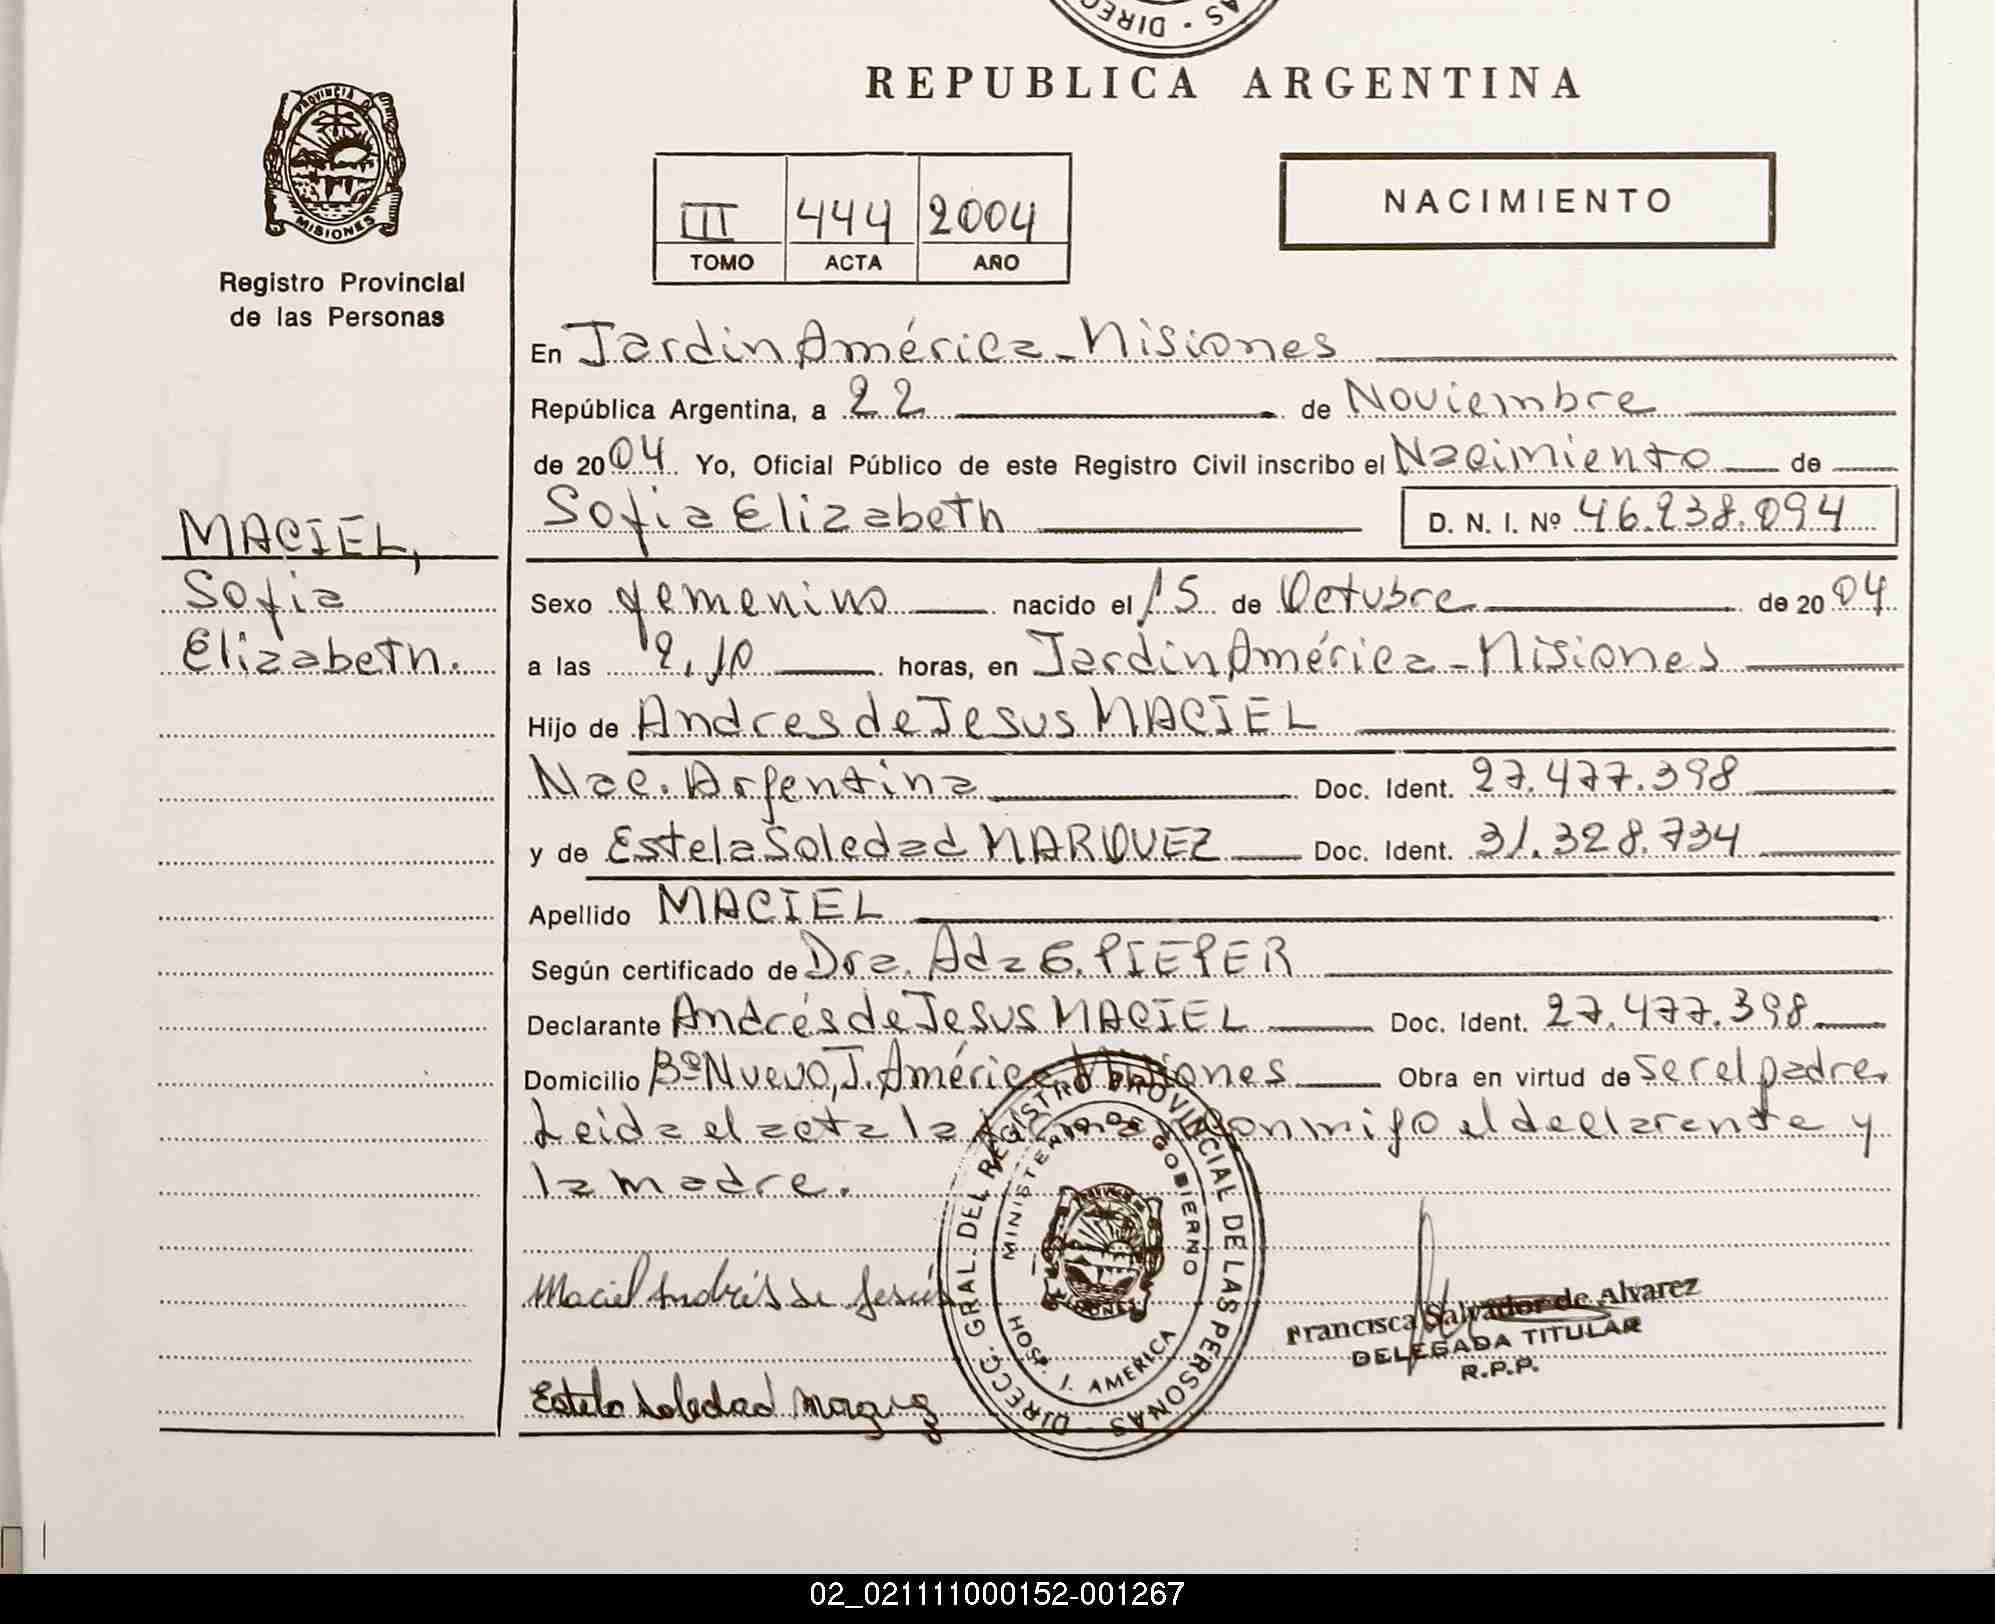 DIRECC
AS
REPUBLICA ARGENTINA
PROVINCIA DE
MISIONES
Registro Provincial
de las Personas
III 444 2004
TOMO ACTA AÑO
NACIMIENTO
En Jardin América - Misiones
República Argentina, a 22 de Noviembre
de 2004 Yo, Oficial Público de este Registro Civil inscribo el Nacimiento de
Sofia Elizabeth D. N. I. Nº 46.238.094
MACIEL,
Sofia
Elizabeth.
Sexo femenino nacido el 15 de Octubre de 2004
a las 2,10 horas, en Jardin América - Misiones
Hijo de Andres de Jesus MACIEL
Nac. Argentina Doc. Ident. 27.477.398
y de Estela Soledad MARQUEZ Doc. Ident. 31.328.734
Apellido MACIEL
Según certificado de Dra. Ada G. PIEPER
Declarante Andrés de Jesus MACIEL Doc. Ident. 27.477.398
Domicilio Bº Nuevo, J. América Misiones Obra en virtud de ser el padre.
Leida el acta la firman conmigo el declarante y
la madre.
DIRECC. GRAL. DEL REGISTRO PROVINCIAL DE LAS PERSONAS
MINISTERIO DE GOBIERNO
HOSP. J. AMERICA
Maciel Andrés de Jesús
Francisca Salvador de Alvarez
DELEGADA TITULAR
R.P.P.
Estela Soledad
02_021111000152-001267